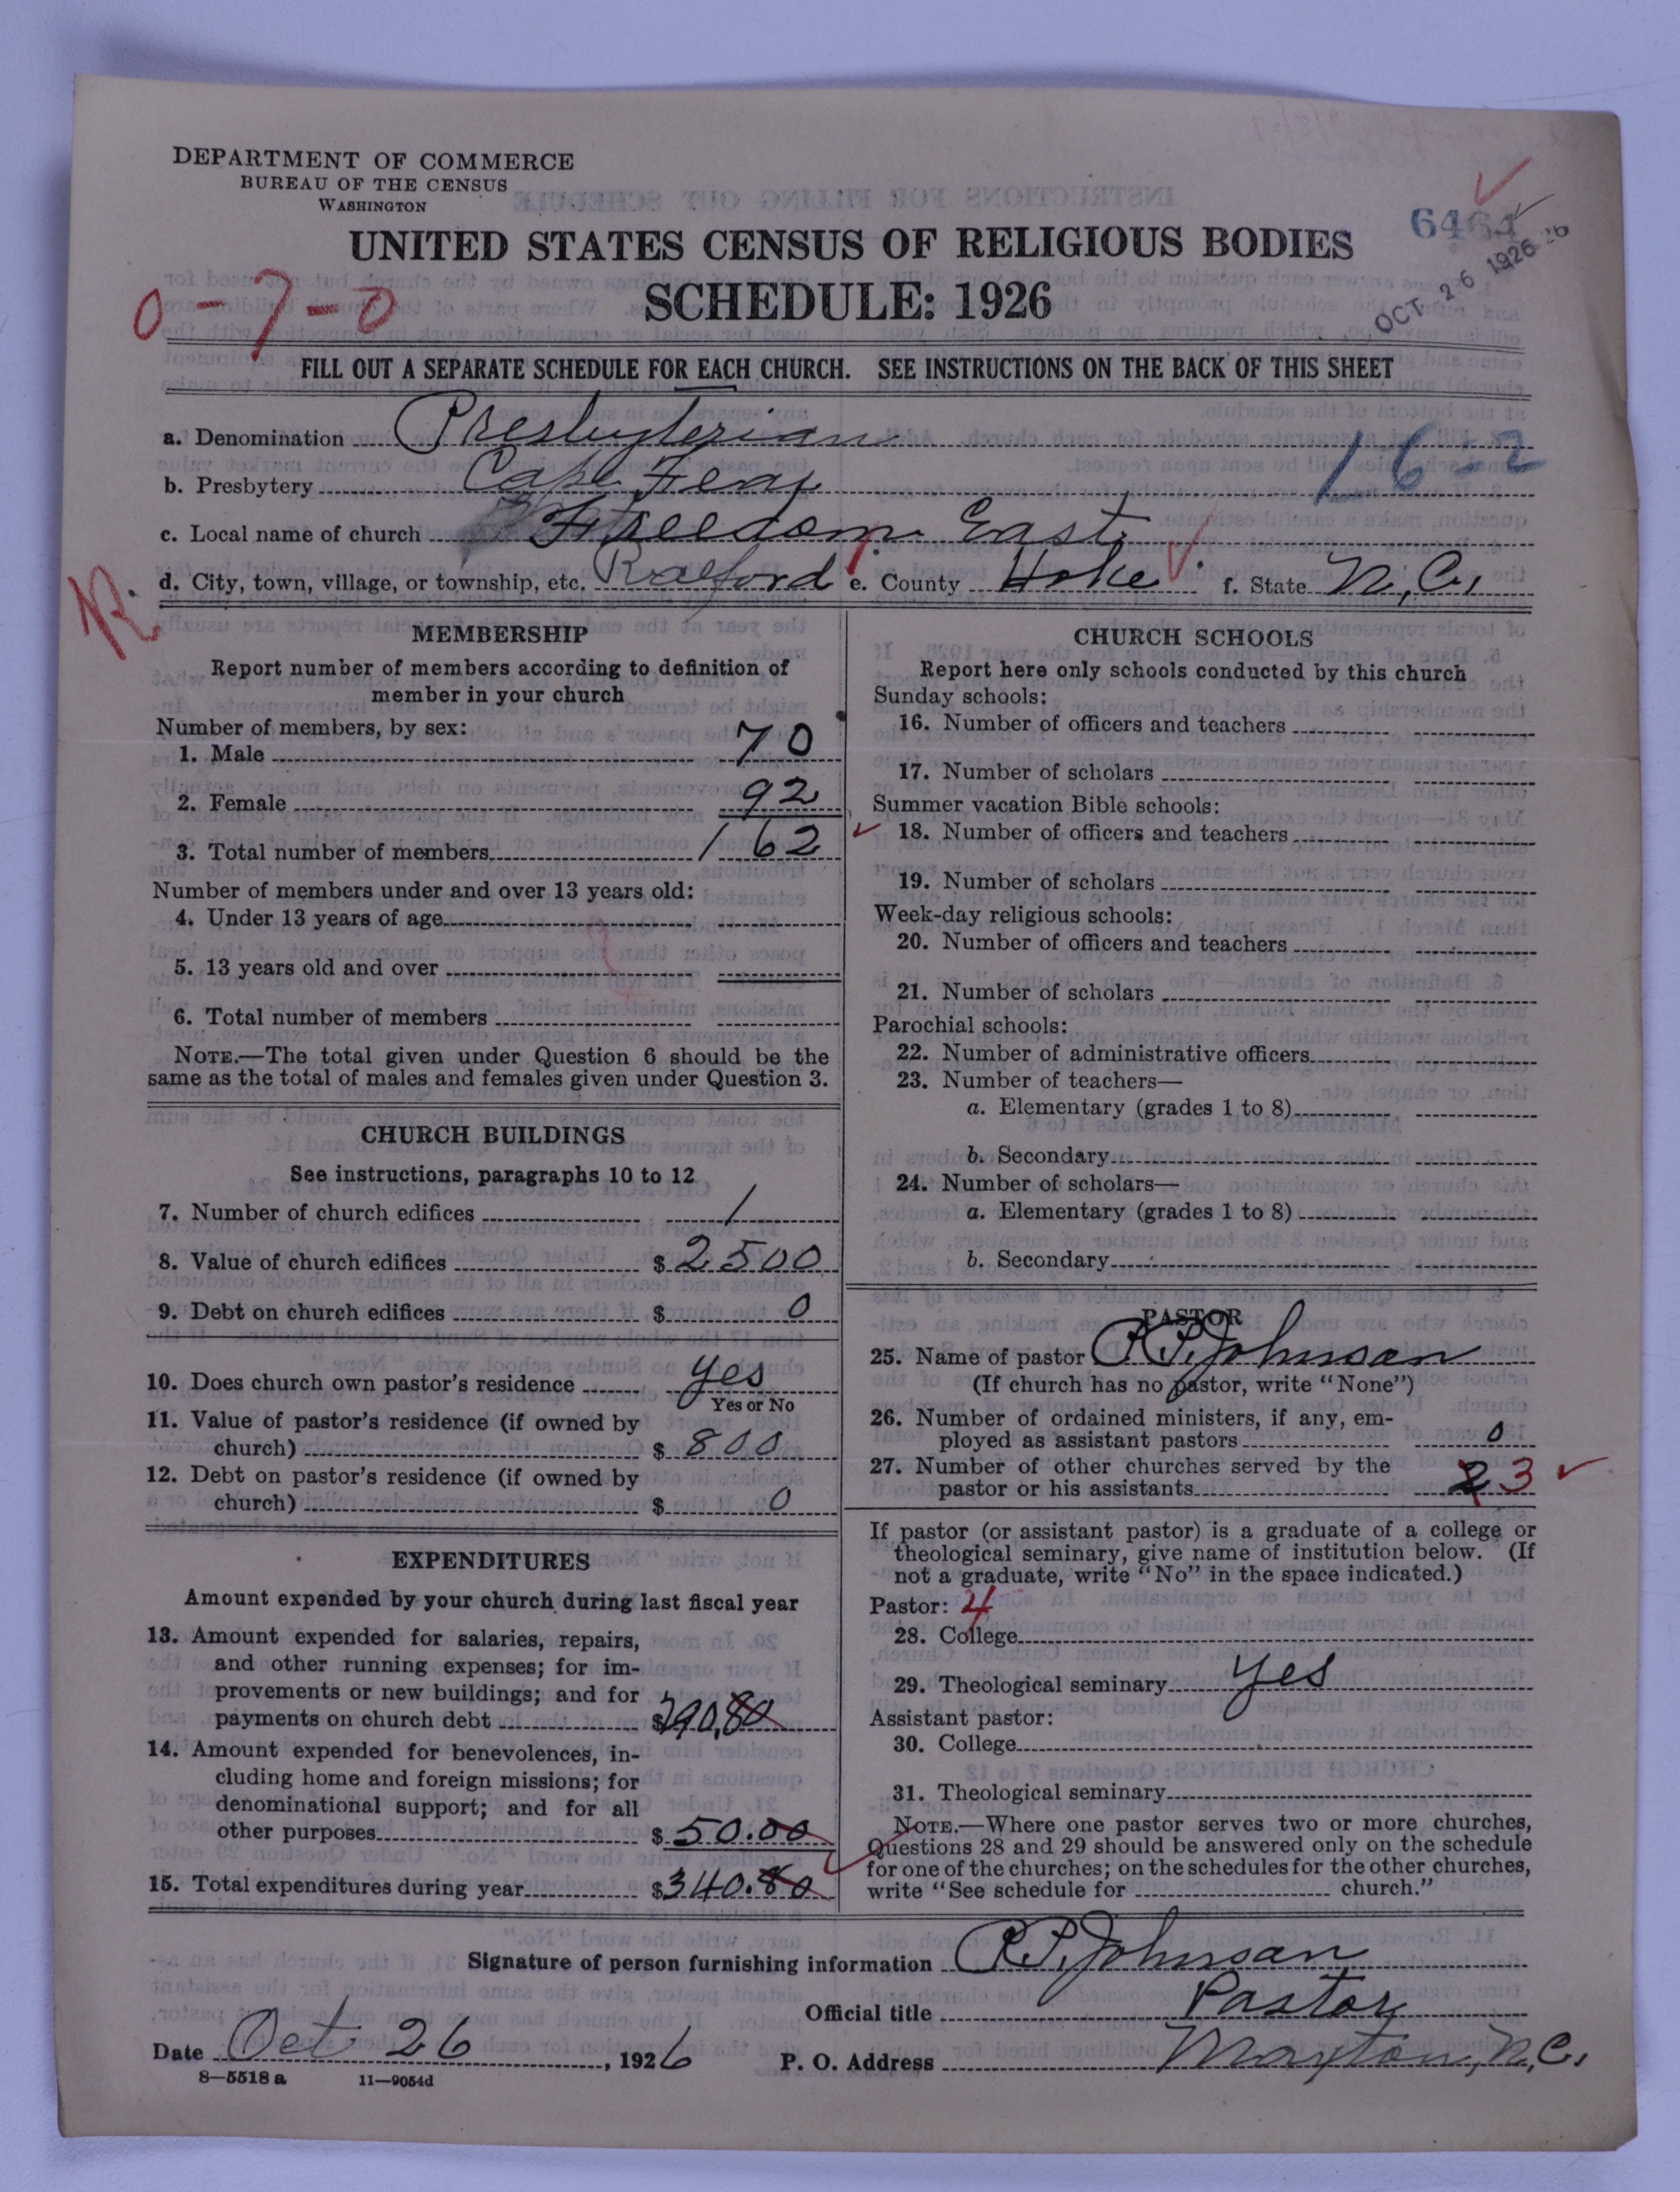 DEPARTMENT OF COMMERCE
BUREAU OF THE CENSUS
WASHINGTON
UNITED STATES CENSUS OF RELIGIOUS BODIES
SCHEDULE: 1926
OCT 26 1926
0-7-0
FILL OUT A SEPARATE SCHEDULE FOR EACH CHURCH. SEE INSTRUCTIONS ON THE BACK OF THIS SHEET
a. Denomination Presbyterian
16-2
b. Presbytery Cape Fear
c. Local name of church Freedom East
d. City, town, village, or township, etc. Raeford e. County Hoke f. State N.C.
R
MEMBERSHIP
Report number of members according to definition of
member in your church
Number of members, by sex:
1. Male 70
2. Female 92
3. Total number of members 162
Number of members under and over 13 years old:
4. Under 13 years of age
5. 13 years old and over
6. Total number of members
NOTE.—The total given under Question 6 should be the
same as the total of males and females given under Question 3.
CHURCH BUILDINGS
See instructions, paragraphs 10 to 12
7. Number of church edifices 1
8. Value of church edifices $2500
9. Debt on church edifices $0
10. Does church own pastor's residence yes
Yes or No
11. Value of pastor's residence (if owned by
church) $800
12. Debt on pastor's residence (if owned by
church) $0
EXPENDITURES
Amount expended by your church during last fiscal year
13. Amount expended for salaries, repairs,
and other running expenses; for im-
provements or new buildings; and for
payments on church debt $290.80
14. Amount expended for benevolences, in-
cluding home and foreign missions; for
denominational support; and for all
other purposes $50.00
15. Total expenditures during year $340.80
CHURCH SCHOOLS
Report here only schools conducted by this church
Sunday schools:
16. Number of officers and teachers
17. Number of scholars
Summer vacation Bible schools:
18. Number of officers and teachers
19. Number of scholars
Week-day religious schools:
20. Number of officers and teachers
21. Number of scholars
Parochial schools:
22. Number of administrative officers
23. Number of teachers—
a. Elementary (grades 1 to 8)
b. Secondary
24. Number of scholars—
a. Elementary (grades 1 to 8)
b. Secondary
PASTOR
25. Name of pastor R.P. Johnson
(If church has no pastor, write "None")
26. Number of ordained ministers, if any, em-
ployed as assistant pastors 0
27. Number of other churches served by the
pastor or his assistants 2 3
If pastor (or assistant pastor) is a graduate of a college or
theological seminary, give name of institution below. (If
not a graduate, write "No" in the space indicated.)
Pastor: 4
28. College
29. Theological seminary yes
Assistant pastor:
30. College
31. Theological seminary
NOTE.—Where one pastor serves two or more churches,
Questions 28 and 29 should be answered only on the schedule
for one of the churches; on the schedules for the other churches,
write "See schedule for church."
Signature of person furnishing information R.P. Johnson
Official title Pastor
Date Oct 26, 1926 P. O. Address Maxton, N.C.
8—5518 a 11—9054d